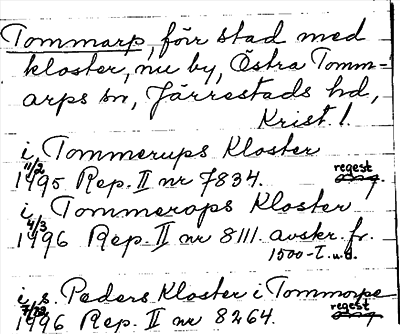 Tommarp, förr stad med
kloster, nu by, Östra Tomm-
arps sn, Järrestads hd,
Krist. l.
i Tommerups Kloster
11/2 1495 Rep. II nr 7834. regest
i Tommerops Kloster
4/3 1496 Rep. II nr 8111 avskr. fr.
1500-t. u.d.
i s. Peders Kloster i Tommorpe
1496 Rep. II nr 8264. regest